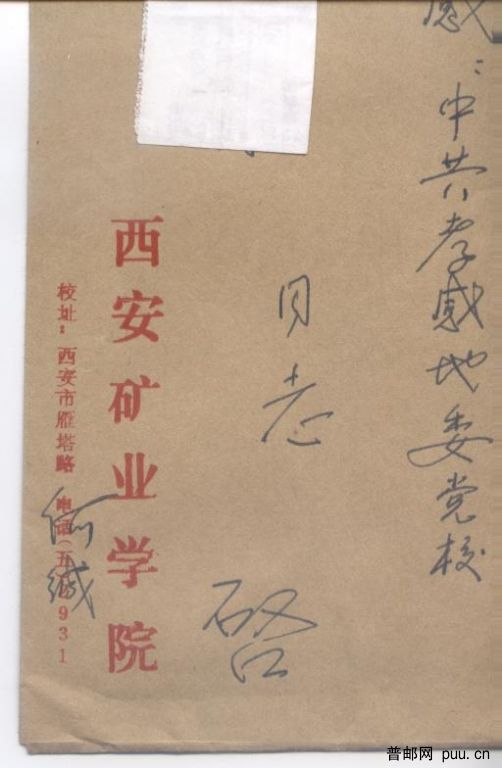 感：中共孝感地委党校
同志
啓
西安矿业学院
校址：西安市雁塔路 电话(五)2931
何缄
普邮网 puu.cn